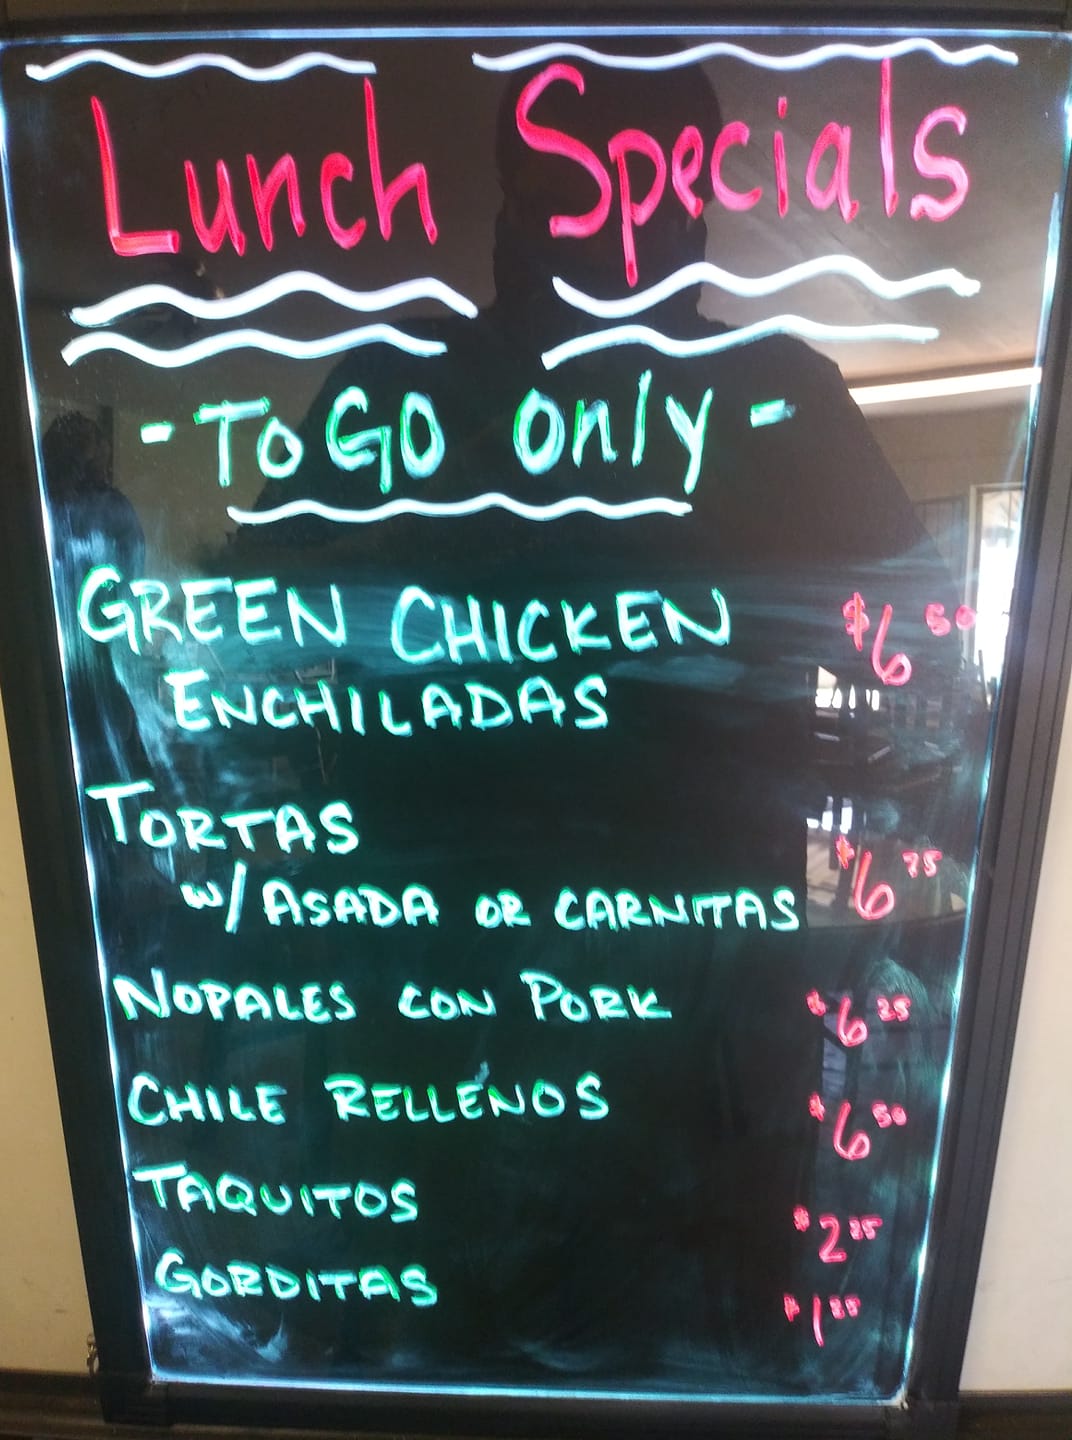 Lunch Specials
- To GO Only -
GREEN CHICKEN $6 50
ENCHILADAS
TORTAS
w/ ASADA OR CARNITAS $6
NOPALES CON PORK $6 25
CHILE RELLENOS $6 50
TAQUITOS $2
GORDITAS $1